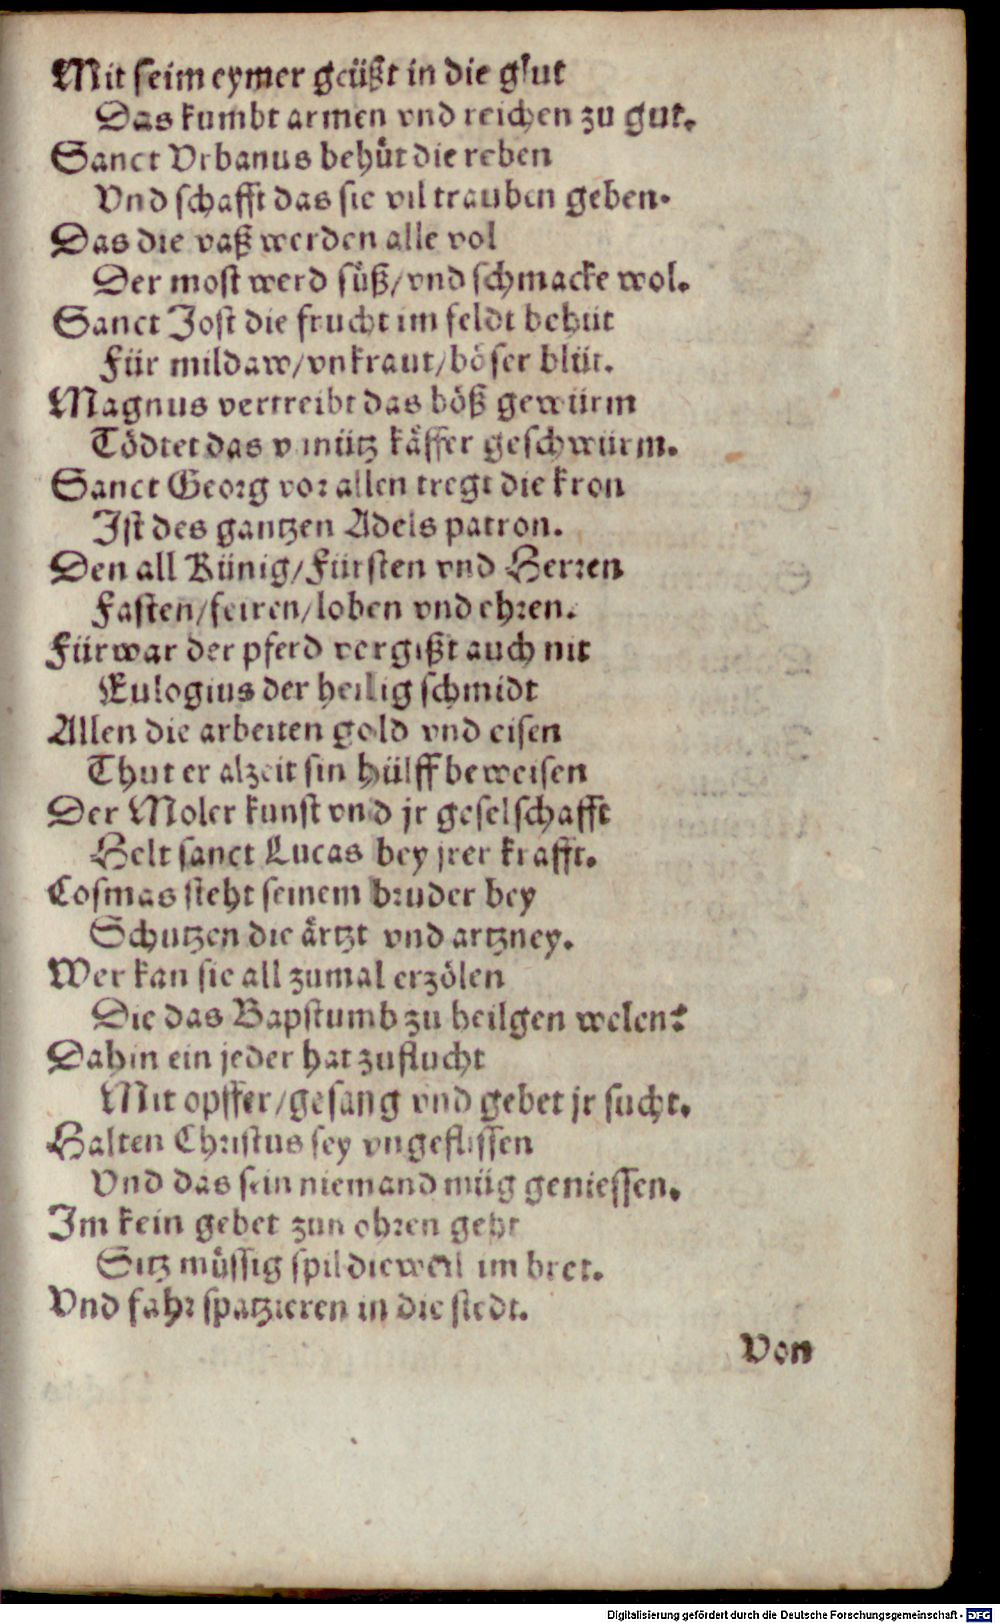 Mit seim eymer geüßt in die glut
Das kumbt armen vnd reichen zu gut.
Sanct Vrbanus behüt die reben
Vnd schafft das sie vil trauben geben.
Das die vaß werden alle vol
Der most werd süß/vnd schmacke wol.
Sanct Jost die frucht im feldt behüt
Für mildaw/vnkraut/böser blüt.
Magnus vertreibt das böß gewürm
Tödtet das vnnütz käffer geschwürm.
Sanct Georg vor allen tregt die kron
Ist des gantzen Adels patron.
Den all Künig/Fürsten vnd Herren
Fasten/feiren/loben vnd ehren.
Fürwar der pferd vergißt auch nit
Eulogius der heilig schmidt
Allen die arbeiten gold vnd eisen
Thut er alzeit sin hülff beweisen
Der Moler kunst vnd jr geselschafft
Helt sanct Lucas bey jrer krafft.
Cosmas steht seinem bruder bey
Schutzen die ärtzt vnd artzney.
Wer kan sie all zumal erzölen
Die das Bapstumb zu heilgen welen?
Dahin ein jeder hat zuflucht
Mit opffer/gesang vnd gebet jr sucht.
Halten Christus sey vngeflissen
Vnd das sein niemand müg geniessen.
Im kein gebet zun ohren geht
Sitz müssig spil dieweil im bret.
Vnd fahr spatzieren in die stedt.
Von
Digitalisierung gefördert durch die Deutsche Forschungsgemeinschaft - DFG